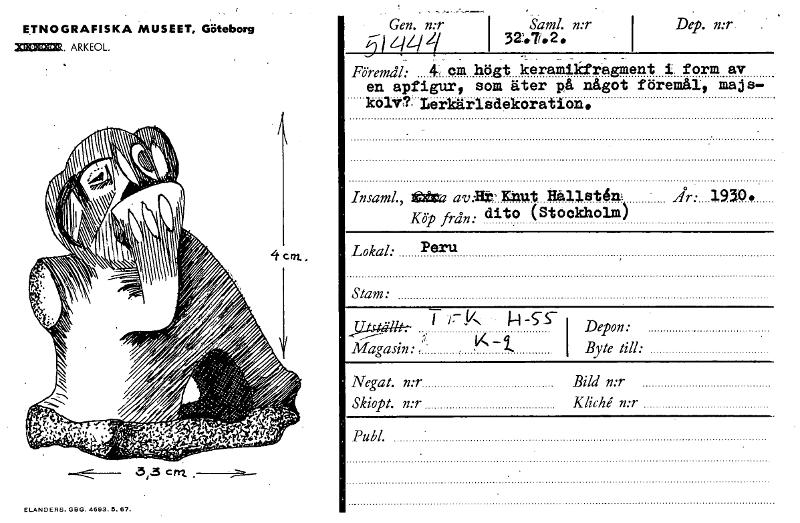 ETNOGRAFISKA MUSEET, Göteborg
ARKEOL.
4 cm.
3,3 cm.
ELANDERS, GBG. 4693. 5. 67.
Gen. n:r Saml. n:r Dep. n:r
51444 32.7.2.
Föremål: 4 cm högt keramikfragment i form av
en apfigur, som äter på något föremål, majs-
kolv? Lerkärlsdekoration.
Insaml., av: Hr Knut Hallstén År: 1930.
Köp från: dito (Stockholm)
Lokal: Peru
Stam:
Utställt: H-55 Depon:
Magasin: K-2 Byte till:
Negat. n:r Bild n:r
Skiopt. n:r Kliché n:r
Publ.